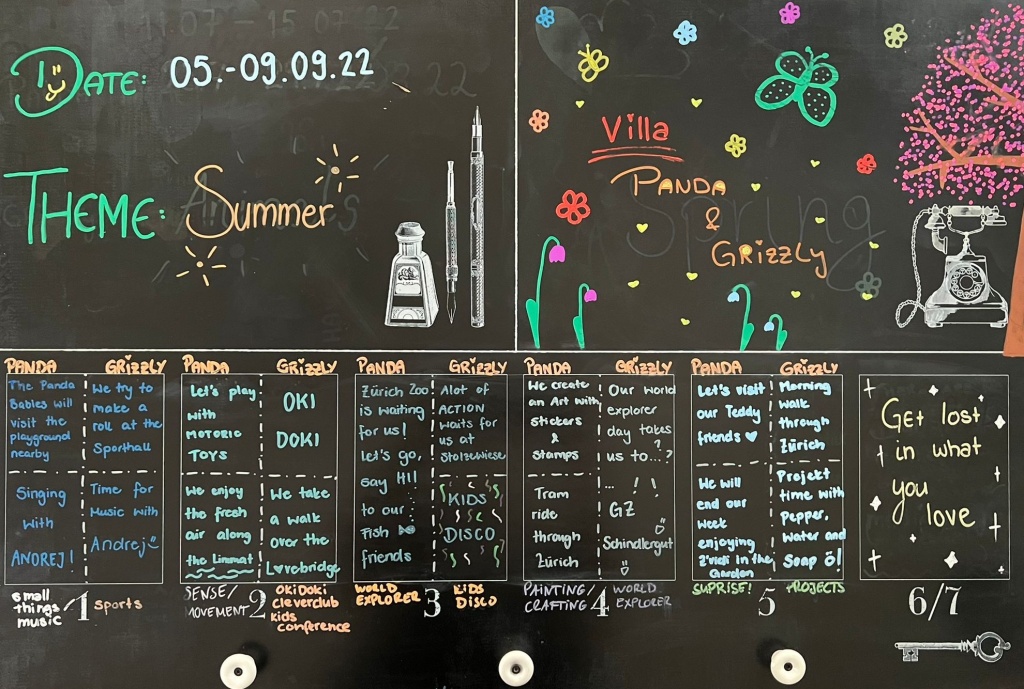 DATE: 05.-09.09.22
THEME: Summer
Villa
PANDA
&
GRizzLy
Spring
PANDA
GRizzLy
The Panda
Babies will
visit the
playground
nearby
We try to
make a
roll at the
Sporthall
Singing
with
ANDREJ!
Time for
Music with
Andrej
small
things/
music
1
sports
PANDA
GRizzLy
Let's play
with
MOTORIC
TOYS
OKI
DOKI
We enjoy
the fresh
air along
the Limmat
We take
a walk
over the
Lovebridge
SENSE/
MOVEMENT
2
OKiDoki
cleverclub
kids
conference
PANDA
GRizzLy
Zürich Zoo
is waiting
for us!
Let's go,
say HI!
to our
Fish
friends
Alot of
ACTION
waits for
us at
Stolzewiese
KIDS
DISCO
WORLD
EXPLORER
3
KiDS
DISCO
PANDA
GRizzLy
We create
an Art with
stickers
&
stamps
Our world
explorer
day takes
us to...?
Tram
ride
through
Zürich
... ! !
GZ
Schindlergut
PAINTING/
CRAFTING
4
WORLD
EXPLORER
PANDA
GRizzLy
Let's visit
our Teddy
friends
Morning
walk
through
Zürich
We will
end our
week
enjoying
Zürich in the
Garden
Projekt
time with
Pepper,
Water and
Soap ö!
SUPRISE!
5
PROJECTS
Get lost
in what
you
love
6/7